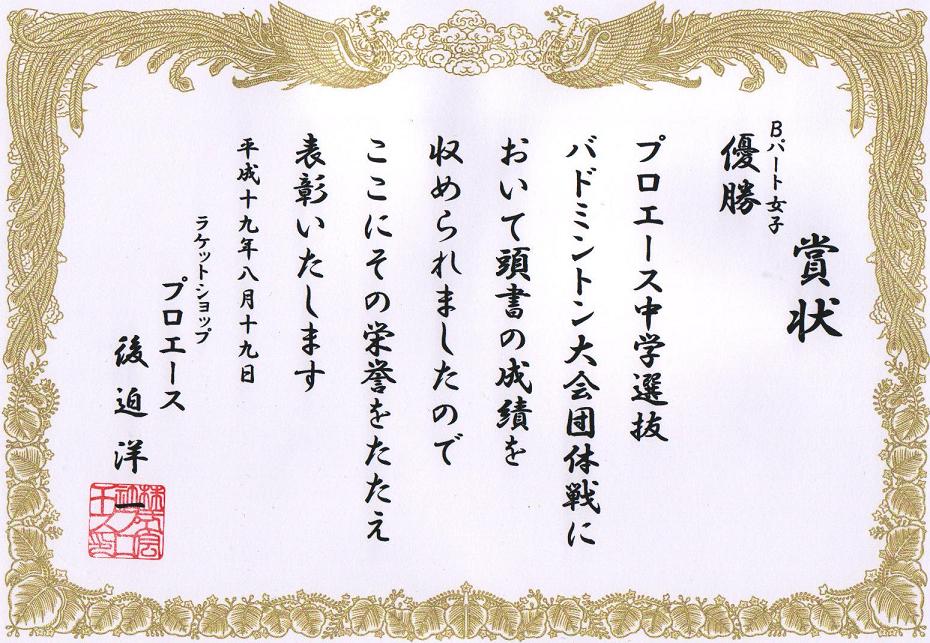 賞状
Bパート女子
優勝
プロエース中学選抜
バドミントン大会団体戦に
おいて頭書の成績を
収められましたので
ここにその栄誉をたたえ
表彰いたします
平成十九年八月十九日
ラケットショップ
プロエース
後迫洋一